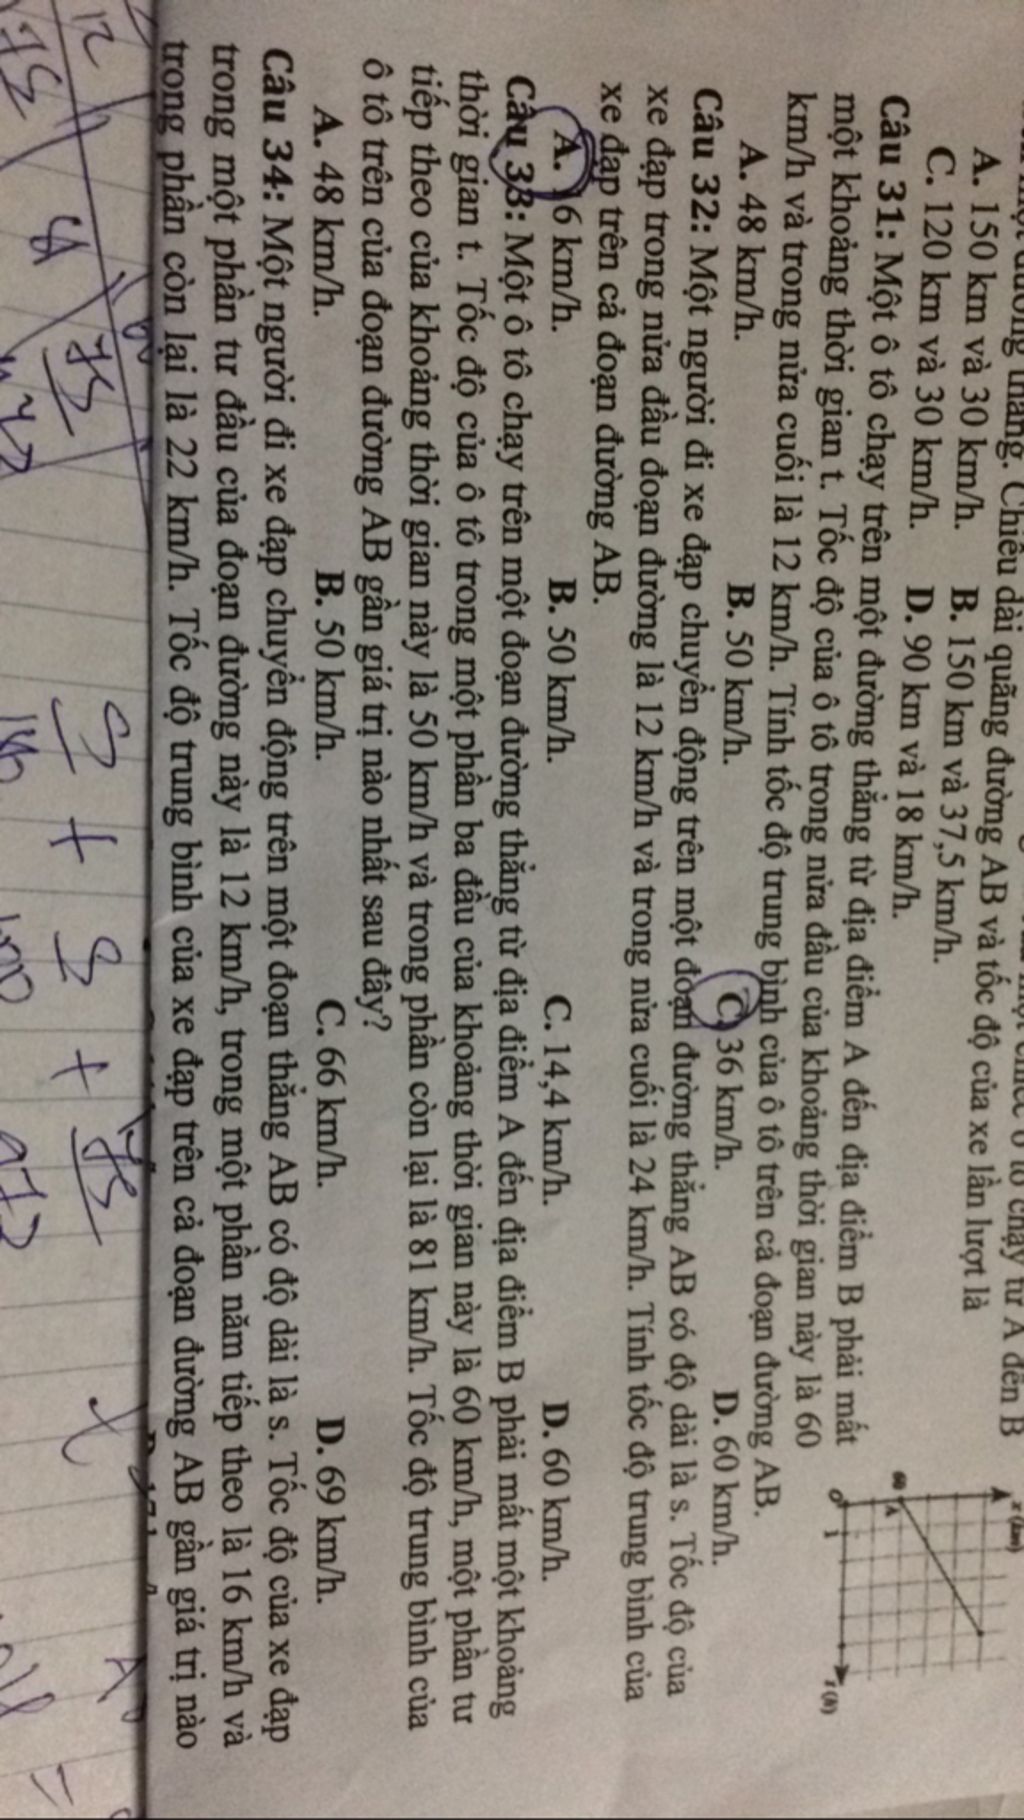 một đường thẳng. Chiều dài quãng đường AB và tốc độ của xe lần lượt là
A. 150 km và 30 km/h. B. 150 km và 37,5 km/h.
C. 120 km và 30 km/h. D. 90 km và 18 km/h.
x (km)
60
A
O
1
t (h)
Câu 31: Một ô tô chạy trên một đường thẳng từ địa điểm A đến địa điểm B phải mất
một khoảng thời gian t. Tốc độ của ô tô trong nửa đầu của khoảng thời gian này là 60
km/h và trong nửa cuối là 12 km/h. Tính tốc độ trung bình của ô tô trên cả đoạn đường AB.
A. 48 km/h. B. 50 km/h. C. 36 km/h. D. 60 km/h.
Câu 32: Một người đi xe đạp chuyển động trên một đoạn đường thẳng AB có độ dài là s. Tốc độ của
xe đạp trong nửa đầu đoạn đường là 12 km/h và trong nửa cuối là 24 km/h. Tính tốc độ trung bình của
xe đạp trên cả đoạn đường AB.
A. 16 km/h. B. 50 km/h. C. 14,4 km/h. D. 60 km/h.
Câu 33: Một ô tô chạy trên một đoạn đường thẳng từ địa điểm A đến địa điểm B phải mất một khoảng
thời gian t. Tốc độ của ô tô trong một phần ba đầu của khoảng thời gian này là 60 km/h, một phần tư
tiếp theo của khoảng thời gian này là 50 km/h và trong phần còn lại là 81 km/h. Tốc độ trung bình của
ô tô trên của đoạn đường AB gần giá trị nào nhất sau đây?
A. 48 km/h. B. 50 km/h. C. 66 km/h. D. 69 km/h.
Câu 34: Một người đi xe đạp chuyển động trên một đoạn thẳng AB có độ dài là s. Tốc độ của xe đạp
trong một phần tư đầu của đoạn đường này là 12 km/h, trong một phần năm tiếp theo là 16 km/h và
trong phần còn lại là 22 km/h. Tốc độ trung bình của xe đạp trên cả đoạn đường AB gần giá trị nào